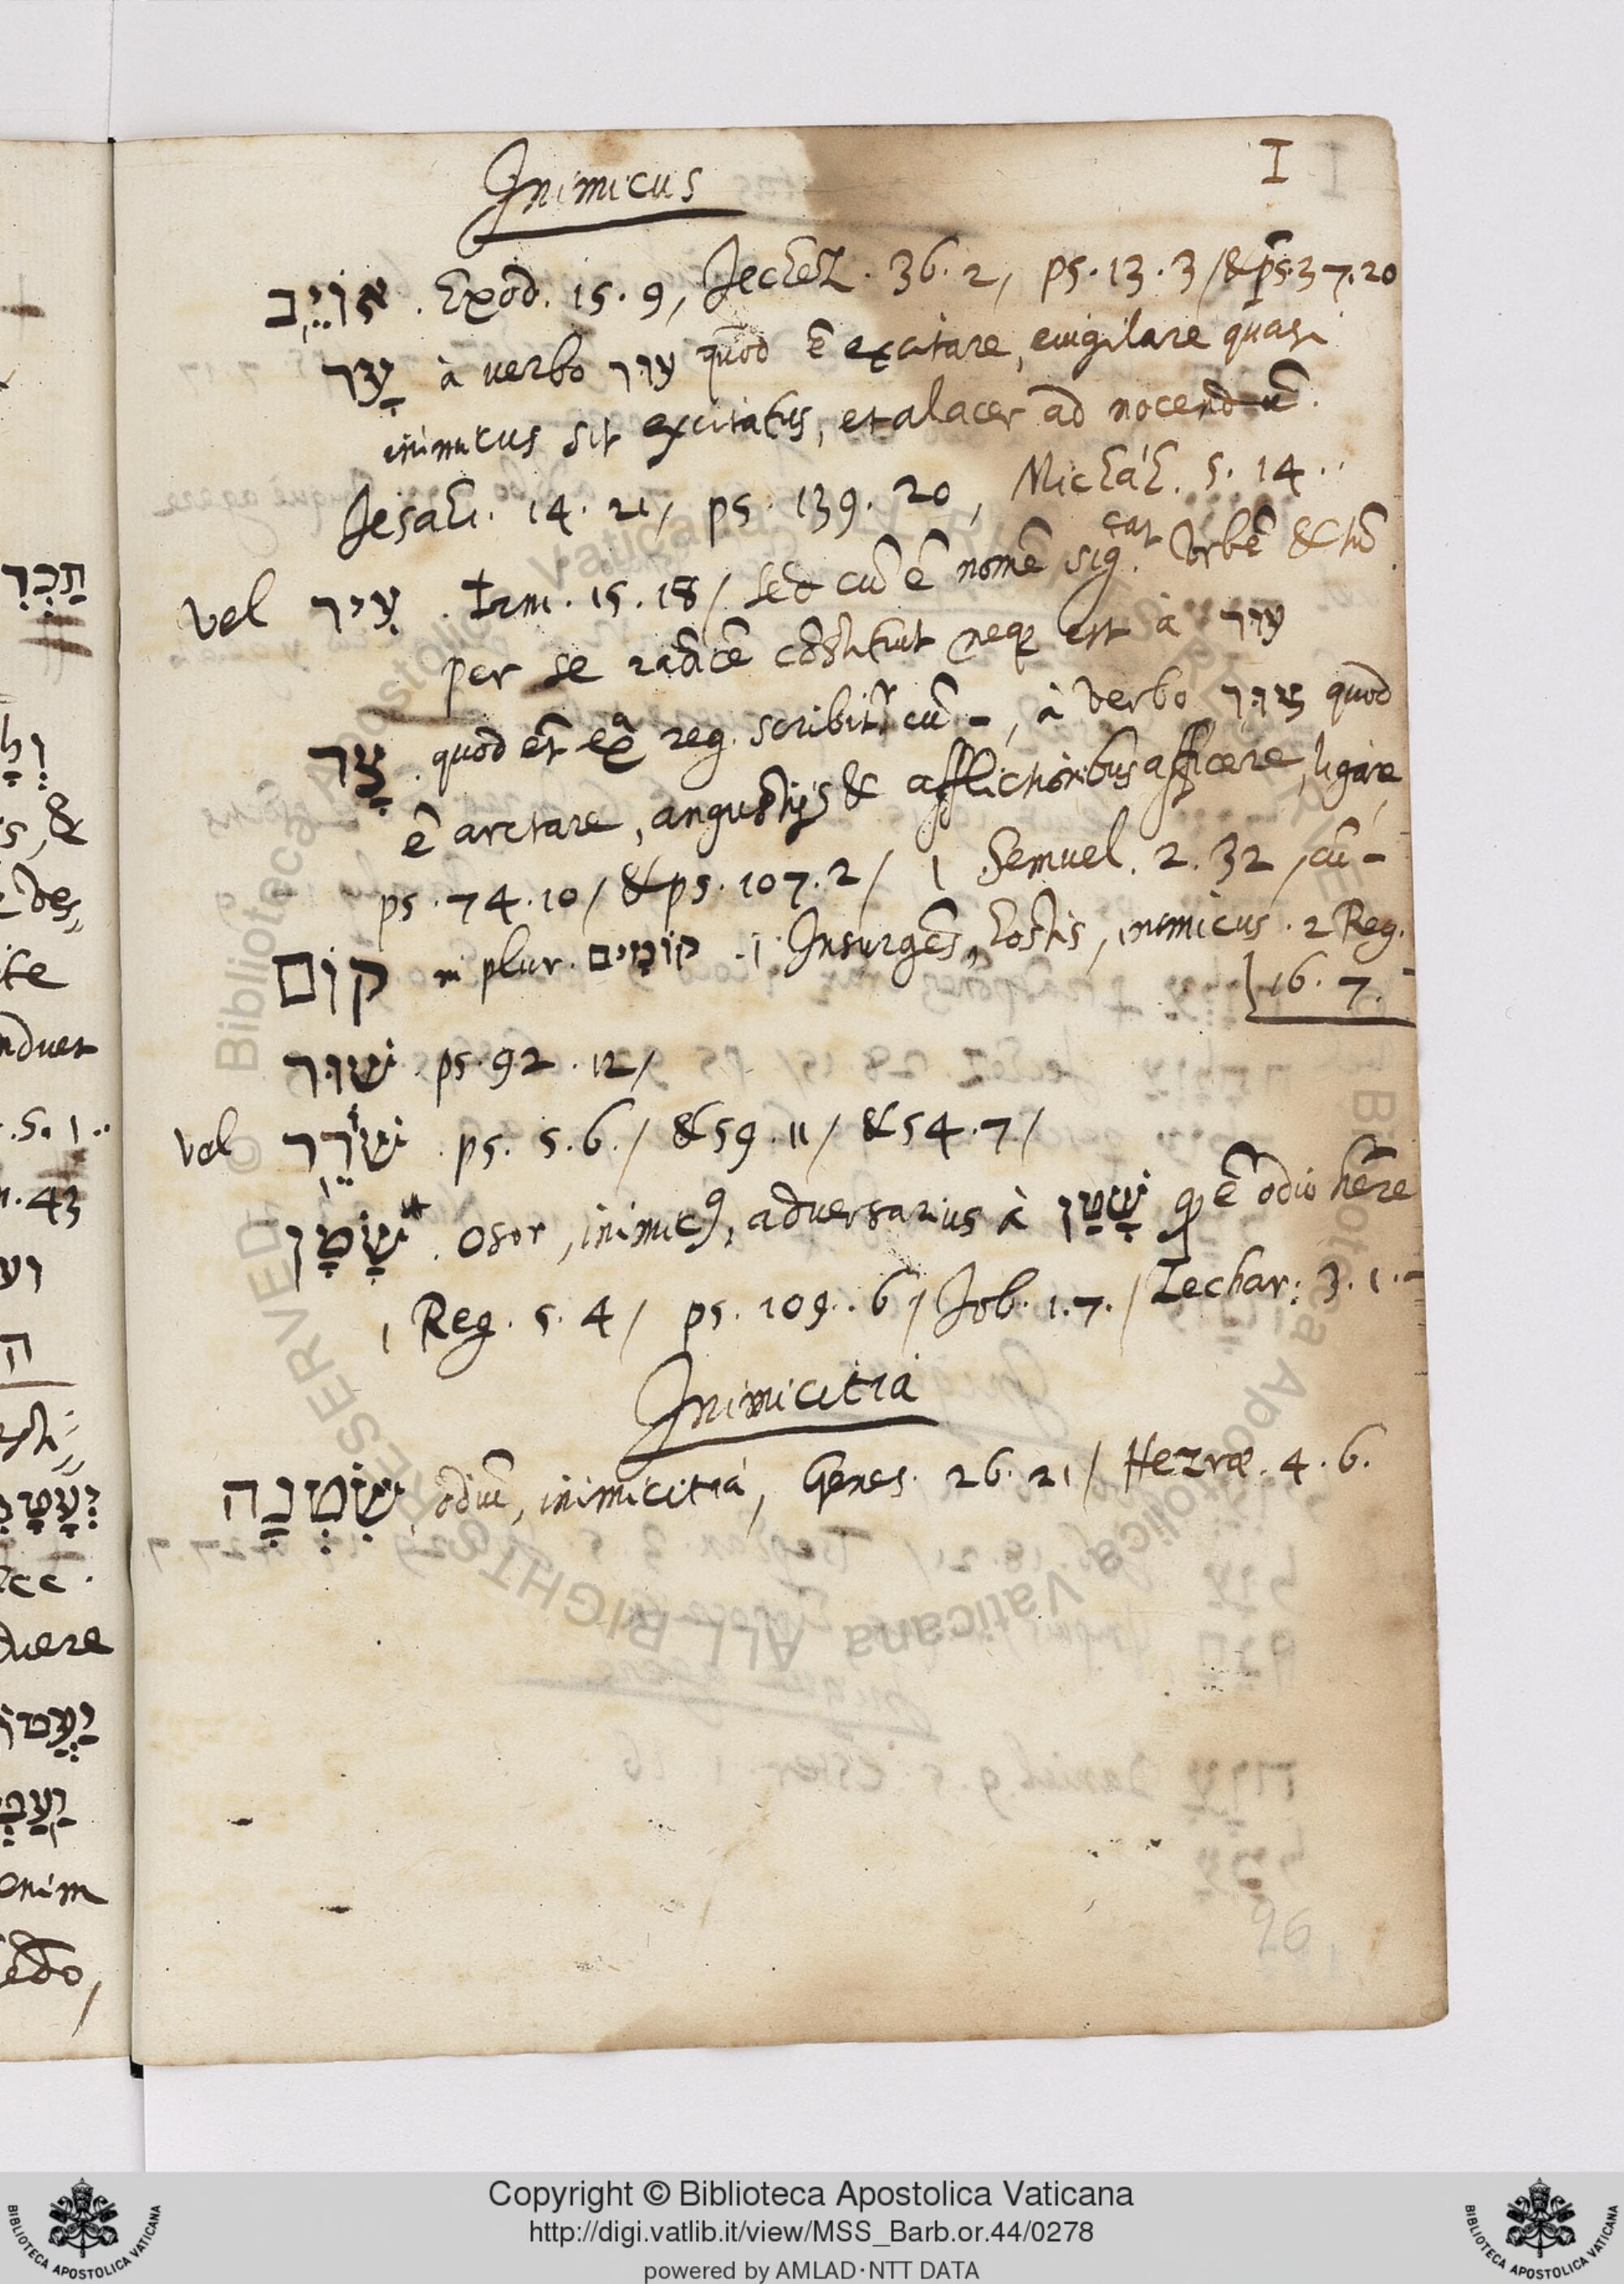 I
Inimicus
אוֹיֵב . Exod. 15. 9, Jechezl. 36. 2, ps. 13. 3 / & ps. 37. 20
עָר à verbo עור quod ē excitare, euigilare quasi
inimicus sit excitatus, et alacer ad nocendū.
Jesah. 14. 21, ps. 139. 20, Michah. 5. 14..
vel עִיר . Irm. 15. 18 / sed cū ē nomē sig.cat Vrbē &
per se radicē cōstituit neq est à עור
צָר . quod et exa reg. scribitr cū -, à verbo צור quod
ē arctare, angustijs & afflictionibus afficere, ligare
ps. 74. 10 / & ps. 107. 2 / 1 Semuel. 2. 32, cū -
קוֹם in plur. קוֹמִים .i. Insurgēs, hostis, inimicus. 2 Reg.
16. 7.
שׁוּר . ps. 92. 12 /
vel שֹׁרֵר . ps. 5. 6. / & 59. 11 / & 54. 7 /
שָׂטָן * . Osor, inimic9, adversarius à שָׂטַן ē odio hēre
1 Reg. 5. 4 / ps. 109. 6 / Job. 1. 7. / Zechar: 3. 1..
Inimicitia
שִׂטְנָה . odiū, inimicitia, Genes. 26. 21 / Hezræ. 4. 6.
Copyright © Biblioteca Apostolica Vaticana
http://digi.vatlib.it/view/MSS_Barb.or.44/0278
powered by AMLAD·NTT DATA